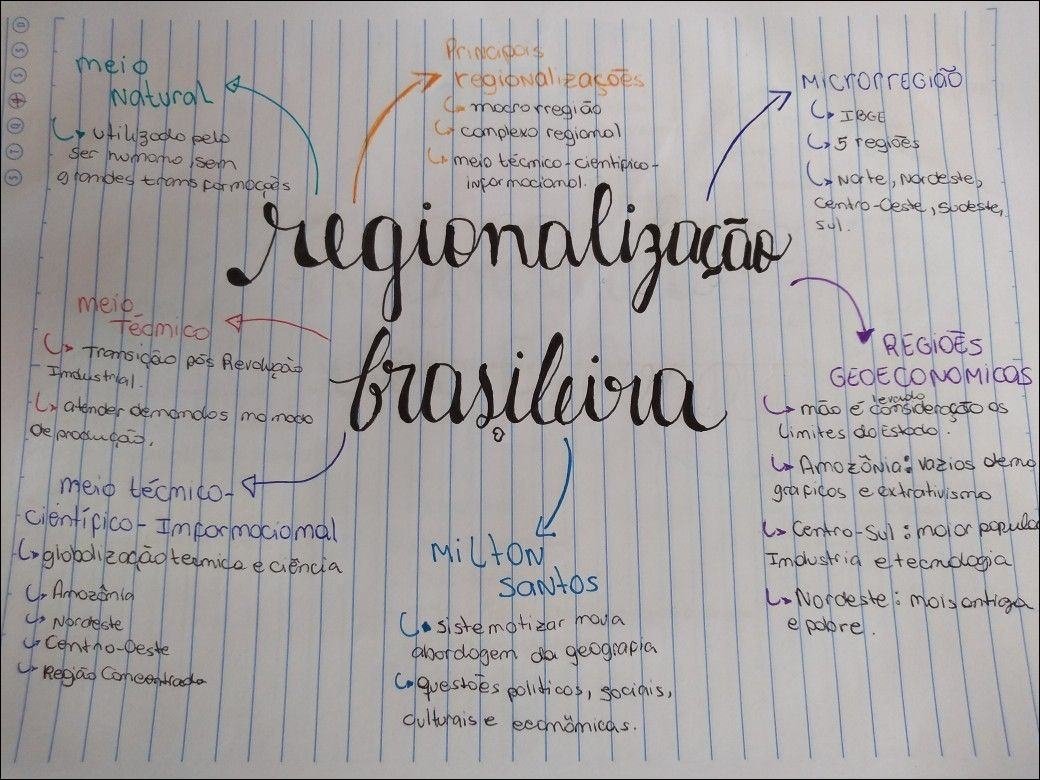 meio
Natural
utilizado pelo
ser humano, sem
grandes transformações
Principais
regionalizações
macrorregião
complexo regional
meio técnico-científico-
informacional.
Microrregião
IBGE
5 regiões
Norte, Nordeste,
Centro-Oeste, Sudeste,
Sul.
regionalização
brasileira
meio
Técnico
Transição pós Revolução
Industrial.
atender demandas no modo
de produção.
REGIÕES
GEOECONOMICAS
não é levado consideração os
limites do Estado.
Amazônia: vazios demo
graficos e extrativismo
Centro-Sul: maior populaç
Industria e tecnologia
Nordeste: mais antiga
e pobre.
meio técnico-
científico-Informacional
globalização tecnica e ciência
Amazônia
Nordeste
Centro-Oeste
Região Concentrada
MILTON
SANTOS
sistematizar nova
abordagem da geografia
questões politicas, sociais,
culturais e econômicas.